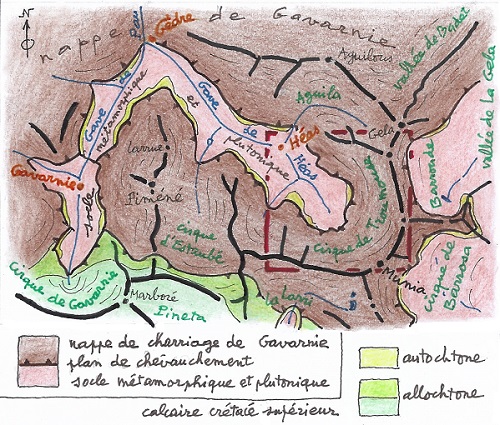 N
nappe de Gavarnie
Gèdre
Gave de Pau
Aguilous
vallée de Badet
vallée de La Gela
métamorphique
et
Gave de
plutonique
Aguila
Gela
Héas
Héas
Barroude
Larrue
Gavarnie
socle
Piméné
cirque de Troumouse
cirque d'Estaubé
cirque de Barrosa
Munia
Cirque de Gavarnie
Marboré
Pineta
La Larri
nappe de charriage de Gavarnie
plan de chevauchement
socle métamorphique et plutonique
autochtone
allochtone
calcaire crétacé supérieur